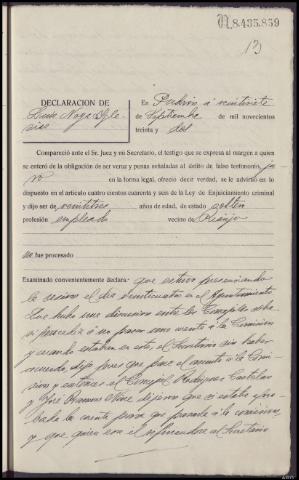 N.8.435.859
13
DECLARACION DE
Luis Noya Igle-
sias
En Padrón a veintisiete
de Septiembre de mil novecientos
treinta y dos
Compareció ante el Sr. Juez y mi Secretario, el testigo que se expresa al margen a quien
se enteró de la obligación de ser veraz y penas señaladas al delito de falso testimonio, ju
ró en la forma legal, ofreció decir verdad, se le advirtió en lo
dispuesto en el artículo cuatro cientos cuarenta y seis de la Ley de Enjuiciamiento criminal
y dijo ser de veintitres años de edad, de estado soltero
profesión empleado vecino de Rianjo
no fue procesado
Examinado convenientemente declara: que estuvo presenciando
la sesion el dia veinticuatro en el Ayuntamiento
que hubo una discusion entre los Concejales sobre
si procedia ó no pasar una cuenta á la Comision
y cuando estaban en esto, el Secretario sin haber
acuerdo, dijo pues que pase el asunto a la Comi-
sion y entonces el Concejal Rodriguez Castelao
y José Ramos dijeron que no estaba apro-
bado la cuenta para que pasando a la comision,
y que quien era el Secretario